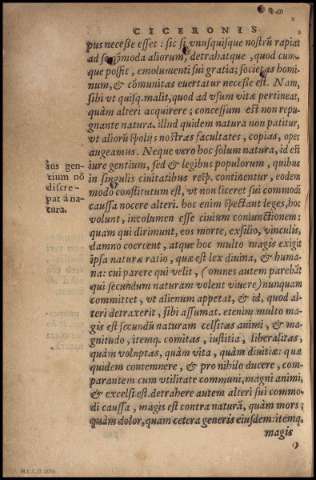 CICERONIS
pus necesse esset: sic si vnusquisque nostrũ rapiat
ad se cõmoda aliorum, detrahatque, quod cui-
que possit, emolumenti sui gratia; societas homi-
num, & cõmunitas euertatur necesse est. Nam,
sibi vt quisq. malit, quod ad vsum vitæ pertineat,
quàm alteri acquirere; concessum est non repu-
gnante natura. illud quidem natura non patitur,
vt aliorũ spolijs nostras facultates, copias, opes
augeamus. Neque vero hoc solum natura, id est
Ius gen-
tium nõ
discre-
pat à na-
tura.
iure gentium, sed & legibus populorum, quibus
in singulis ciuitatibus resp. continentur, eodem
modo constitutum est, vt non liceret sui commodi
caussa nocere alteri. hoc enim spectant leges, hoc
volunt, incolumen esse ciuium coniunctionem:
quam qui dirimunt, eos morte, exsilio, vinculis,
damno coercent, atque hoc multo magis exigit
ipsa naturæ ratio, quæ est lex diuina, & huma-
na: cui parere qui velit, (omnes autem parebũt
qui secundum naturam volent viuere) nunquam
committet, vt alienum appetat, & id, quod al-
teri detraxerit, sibi assumat. etenim multo ma-
gis est secundũ naturam celsitas animi, & ma-
gnitudo, itemq. comitas, iustitia, liberalitas,
quàm voluptas, quàm vita, quàm diuitiæ: quæ
quidem contemnere, & pro nihilo ducere, com-
parantem cum vtilitate communi, magni animi,
& excelsi est. detrahere autem alteri sui commo-
di caussa, magis est contra naturã, quàm mors,
quàm dolor, quam cetera generis eiusdem: itemq.
magis